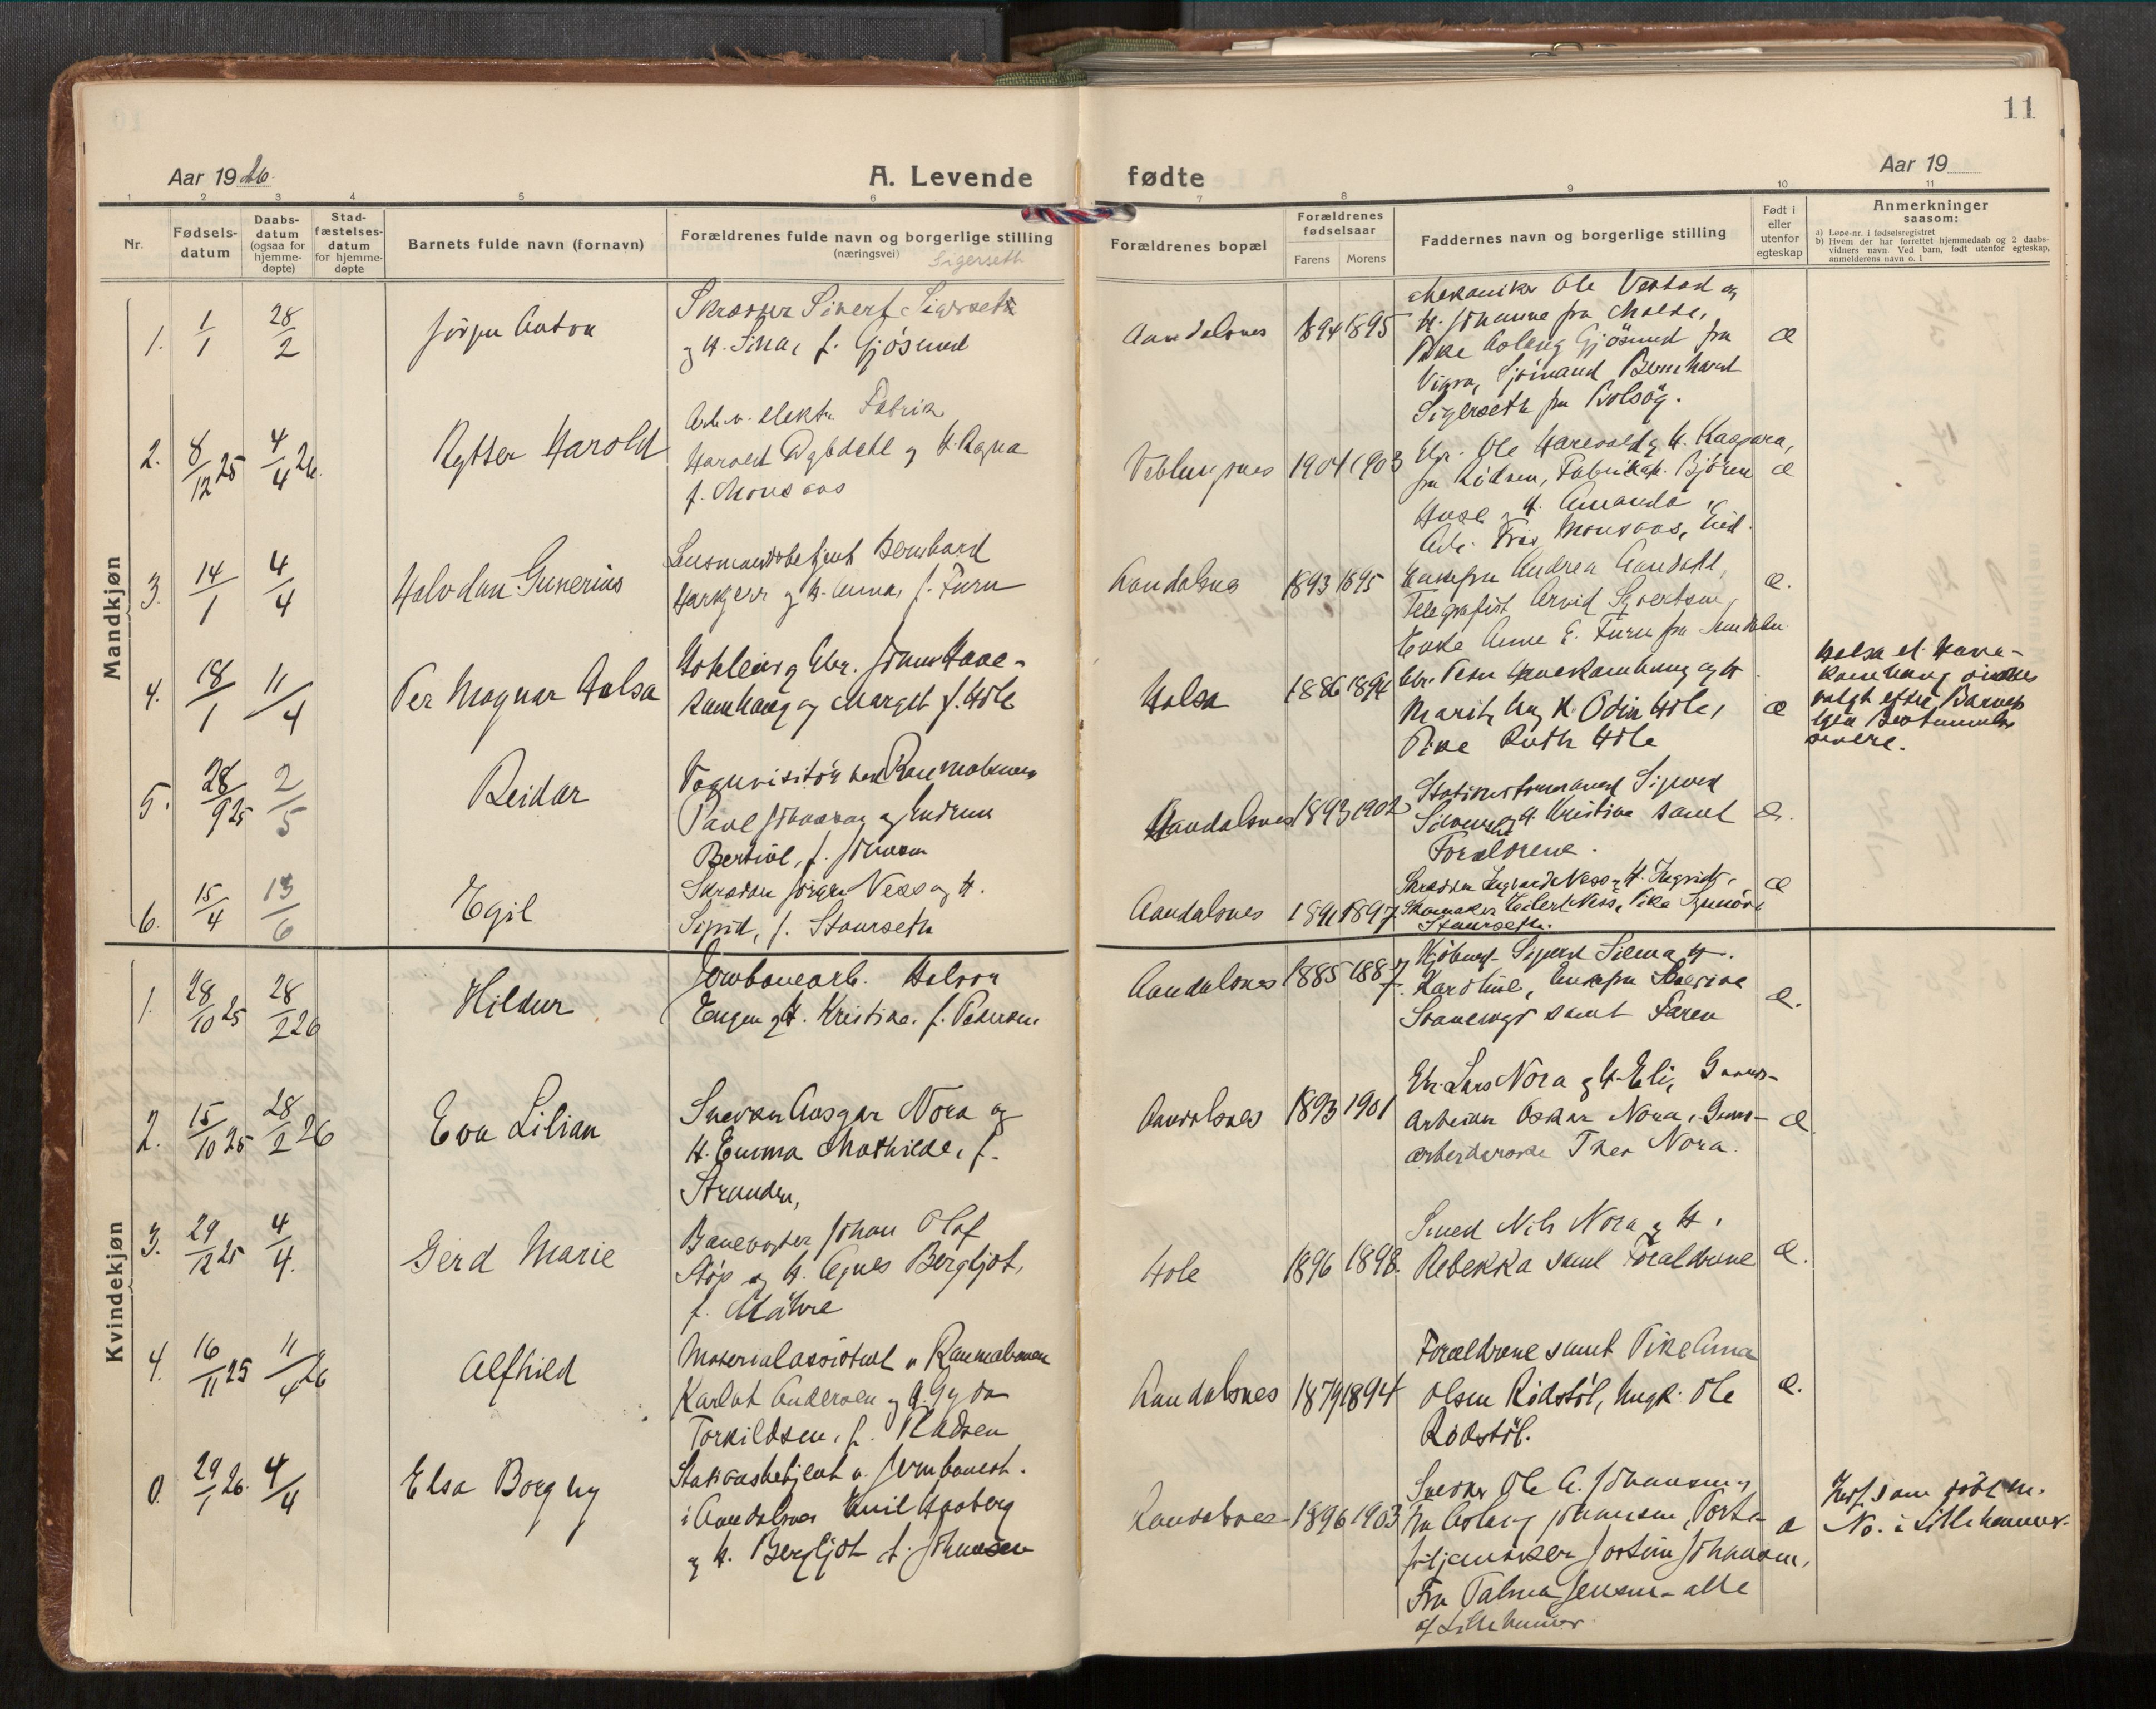 11
Aar 1926.
A. Levende
fødte
Aar 19
1 2 3 4 5 6 7 8 9 10 11
Nr.
Fødsels-
datum
Daabs-
datum
(ogsaa for
hjemme-
døpte)
Stad-
fæstelses-
datum
for hjemme-
døpte
Barnets fulde navn (fornavn)
Forældrenes fulde navn og borgerlige stilling
(næringsvei)
Sigerseth
Forældrenes bopæl
Forældrenes
fødselsaar
Farens Morens
Faddernes navn og borgerlige stilling
Født i
eller
utenfor
egteskap
Anmerkninger
saasom:
a) Løpe-nr. i fødselsregistret
b) Hvem der har forrettet hjemmedaab og 2 daabs-
vidners navn. Ved barn, født utenfor egteskap,
anmelderens navn o. l
Mandkjøn
1. 1/1 28/2
Jörgen Anton
Skrædder Sivert
og H. Sina, f. Gjösund
Aandalsnes 1894 1895
Mekaniker Ole Vestad og
H. Johanne fra Molde,
Pike Aslaug Gjösund fra
Vigra, Sjömand Bernhard
Sigerseth fra Bolsöy.
æ
2. 8/12 25 4/4 26.
Rytter Harold
Arb. v. elektr. Fabrik
Harold Rypdahl og H. Ragna
f. Monsaas
Veblungsnes 1904 1903
Gbr. Ole Harevold og H. Kaspara,
fra Rödven, Fabrikarb. Björn
H. Amanda
Arb. Monsaas, Eid.
æ
3. 14/1 4/4
Halvdan Gunerius
Lensmandsbetjent Bernhard
og H. Anna, f. Furu
Aandalsnes 1893 1895
Enkefru Andrea Aandahl,
Telegrafist Arvid Syvertsen,
Enke Anne E. Furu fra
æ.
4. 18/1 11/4
Per Magnar Holsa
og Gbr. Johan Haae-
kamhaug og Marget f. Hole
Holsa 1886 1894
Gbr. Peter Haaekamhaug og H.
Marit, Ung K. Odin Hole,
Pike Ruth Hole
æ
Holsa el. Haae-
kamhaug
valgt efter Barnets
egen Bestemmelse
senere.
5. 28/9 25 2/5
Reidar
Vognvisitör ved Raumabanen
Paul Johansen og
Bertine, f. Johnsen
Aandalsnes 1893 1902
Stationsformand Sigurd
og H. Kristine samt
Forældrene.
æ.
6. 15/4 13/6
Egil
Skrædder Jörgen Ness og H.
Sigrid, f. Staurseth
Aandalsnes 1891 1897
Skrædder Ingvard Ness og H. Ingrid,
Skomaker Eilert Ness, Pike Synnöve
Staurseth.
æ
Kvindekjøn
1. 28/10 25 28/2 26
Hildur
Jernbanearb. Halvor
Engen og H. Kristine, f. Pedersen
Aandalsnes 1885 1887
Kjöbmd. Sigurd Silema og H.
Karoline, Enkefru Severine
samt Faren
æ.
2. 15/10 25 28/2 26
Eva Lilian
Snekker Ansgar Nora og
H. Emma Mathilde, f.
Stranden,
Aandalsnes 1893 1901
Gbr. Lars Nora og H. Eli, Gaards-
arbeider Oskar Nora, Gaards-
arbeiderske Thea Nora.
æ.
3. 29/12 25 4/4.
Gerd Marie
Banevogter Johan Olaf
Stöp og H. Agnes Bergljot,
f. Mähre
Hole 1896 1898.
Smed Nils Nora og H.
Rebekka samt Forældrene
æ.
4. 16/11 25 11/4 26
Alfhild
Materialassistent v. Raumabanen
Karlot Andersen og H. Gyda
Torkildsen, f. Madsen
Aandalsnes 1879 1894
Forældrene samt Pike Anna
Olsen Rödstöl, Ungk. Ole
Rödstöl.
æ.
0. 29/1 26. 4/4
Elsa Borgny
Stationsbetjent v. Jernbanest.
i Aandalsnes Emil Haaberg
og H. Bergljot f. Johansen
Aandalsnes 1896 1903
Snekker Ole A. Johansen,
Fru Aslaug Johansen, Porte-
följemaker Jostein Johansen,
Fru Palma Jensen - alle
af Lillehammer
æ
Indf. som
No. i Lillehammer.